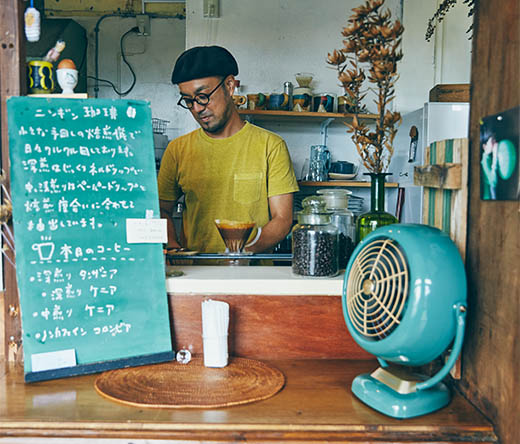 ニンギン 珈琲
小さな手回しの焙煎機で
日々クルクル回しております。
深煎はじっくりネルドリップで
中、浅煎りはペーパードリップと
焙煎度合いに合わせて
お出ししています。
本日のコーヒー
・深煎り タンザニア
・深煎り ケニア
・中煎り ケニア
・ノンカフェイン コロンビア